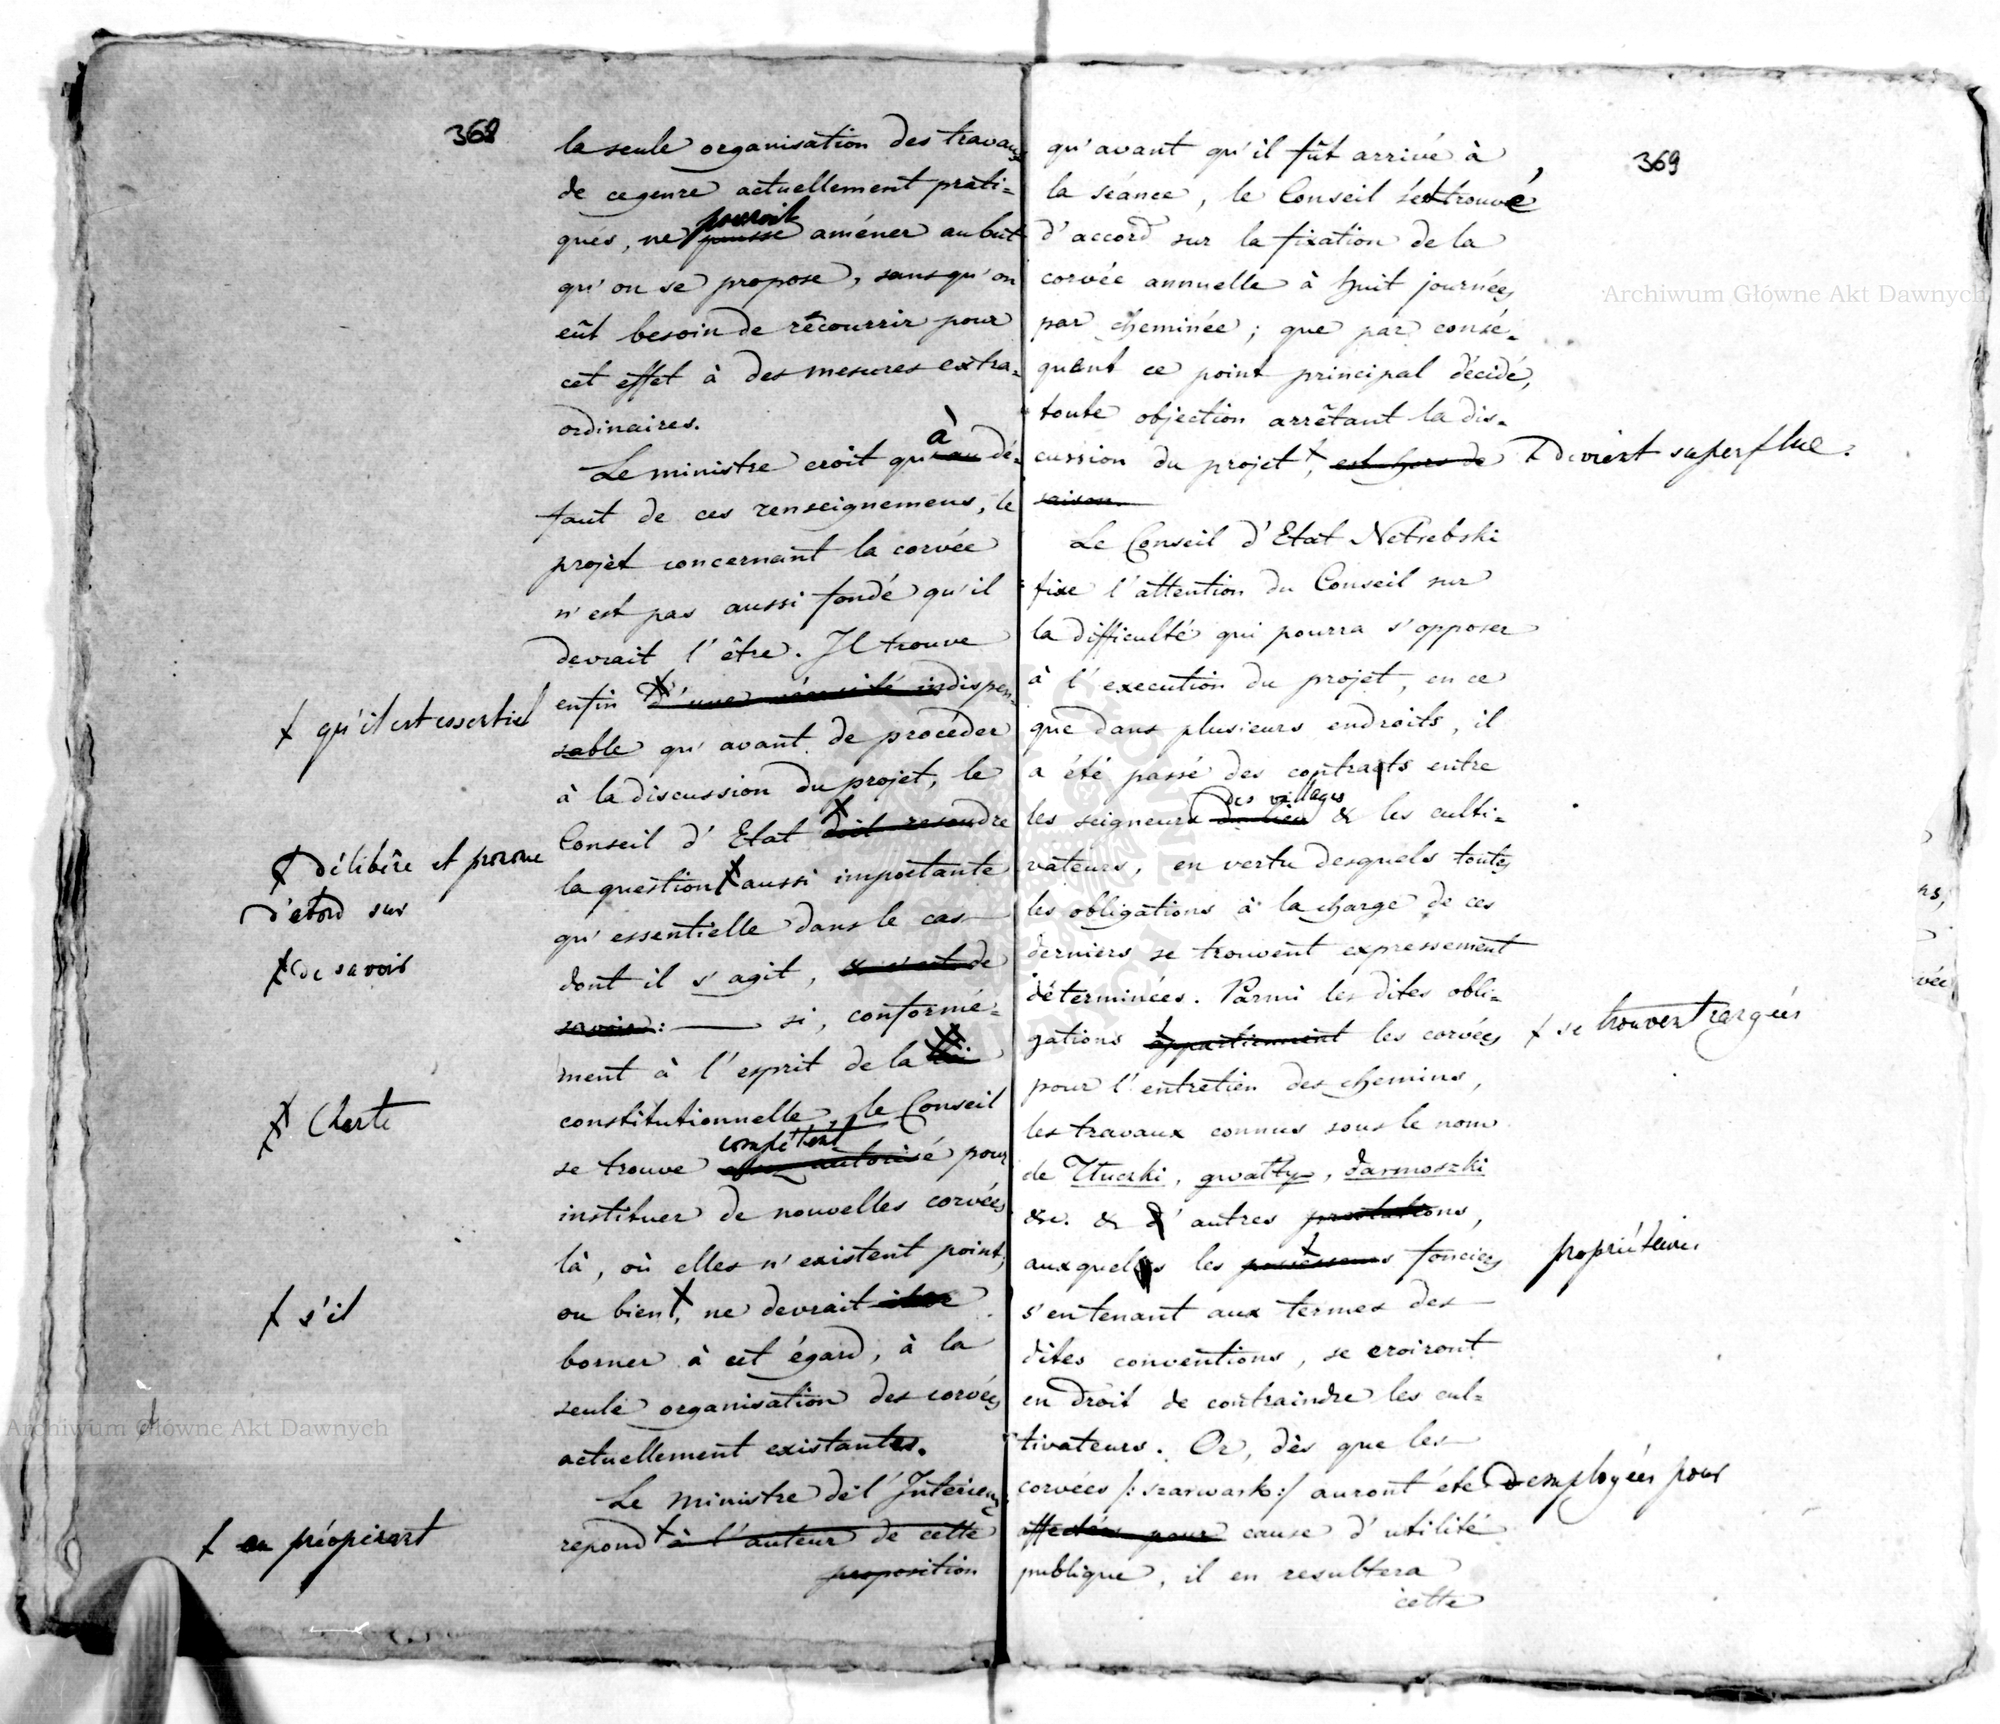 368
la seule organisation des travaux
de ce genre actuellement prati=
ques, ne pouroit puisse améner au but
qu'on se propose, sans qu'on
eût besoin de récourrir pour
cet effet à des mesures extra=
ordinaires.
Le ministre croit qu'à au dé=
faut de ces renseignemens, le
projet concernant la corvée
n'est pas aussi fondé qu'il
devrait l'être. Il trouve
enfin d'une nécessité indispen=
sable qu'avant de procéder
à la discussion du projet, le
Conseil d'Etat doit resoudre
la question aussi importante
qu'essentielle dans le cas
dont il s'agit, & c'est de
savoir: — si, conformé=
ment à l'esprit de la loi
constitutionnelle, le Conseil
se trouve compétent autorisé pour
instituer de nouvelles corvées
là, où elles n'existent point,
ou bien, ne devrait il se
borner à cet égard, à la
seule organisation des corvées
actuellement existantes.
Le Ministre de l'Intérieur
repond à l'auteur de cette
proposition
+ qu'il est essentiel
+ Délibère et prononce
d'abord sur
+ de savoir
+ Charte
+ s'il
+ en préopinant
369
qu'avant qu'il fût arrivé à
la séance, le Conseil s'est trouvé
d'accord sur la fixation de la
corvée annuelle à huit journées
par cheminée; que par consé=
quent ce point principal décidé,
toute objection arrêtant la dis=
cussion du projet, est hors de
saison.
Le Conseil d'Etat Netrebski
fixe l'attention du Conseil sur
la difficulté qui pourra s'opposer
à l'execution du projet, en ce
que dans plusieurs endroits, il
a été passé des contracts entre
les seigneurs des villages du lieu & les culti=
vateurs, en vertu desquels toutes
les obligations à la charge de ces
derniers se trouvent expressement
déterminées. Parmi les dites obli=
gations appartiennent les corvées
pour l'entretien des chemins,
les travaux connus sous le nom
de Tłuczki, gwałty, darmoszki
&c. & d'autres prestations,
auxquels les possesseurs fonciers
s'en tenant aux termes des
dites conventions, se croiront
en droit de contraindre les cul=
tivateurs. Or, dès que les
corvées /: szarwark :/ auront été
affectées pour cause d'utilité
publique, il en resultera
cette
+ Devient superflue.
+ se trouvent rangées
propriétaires
employées pour
Archiwum Główne Akt Dawnych
Archiwum Główne Akt Dawnych